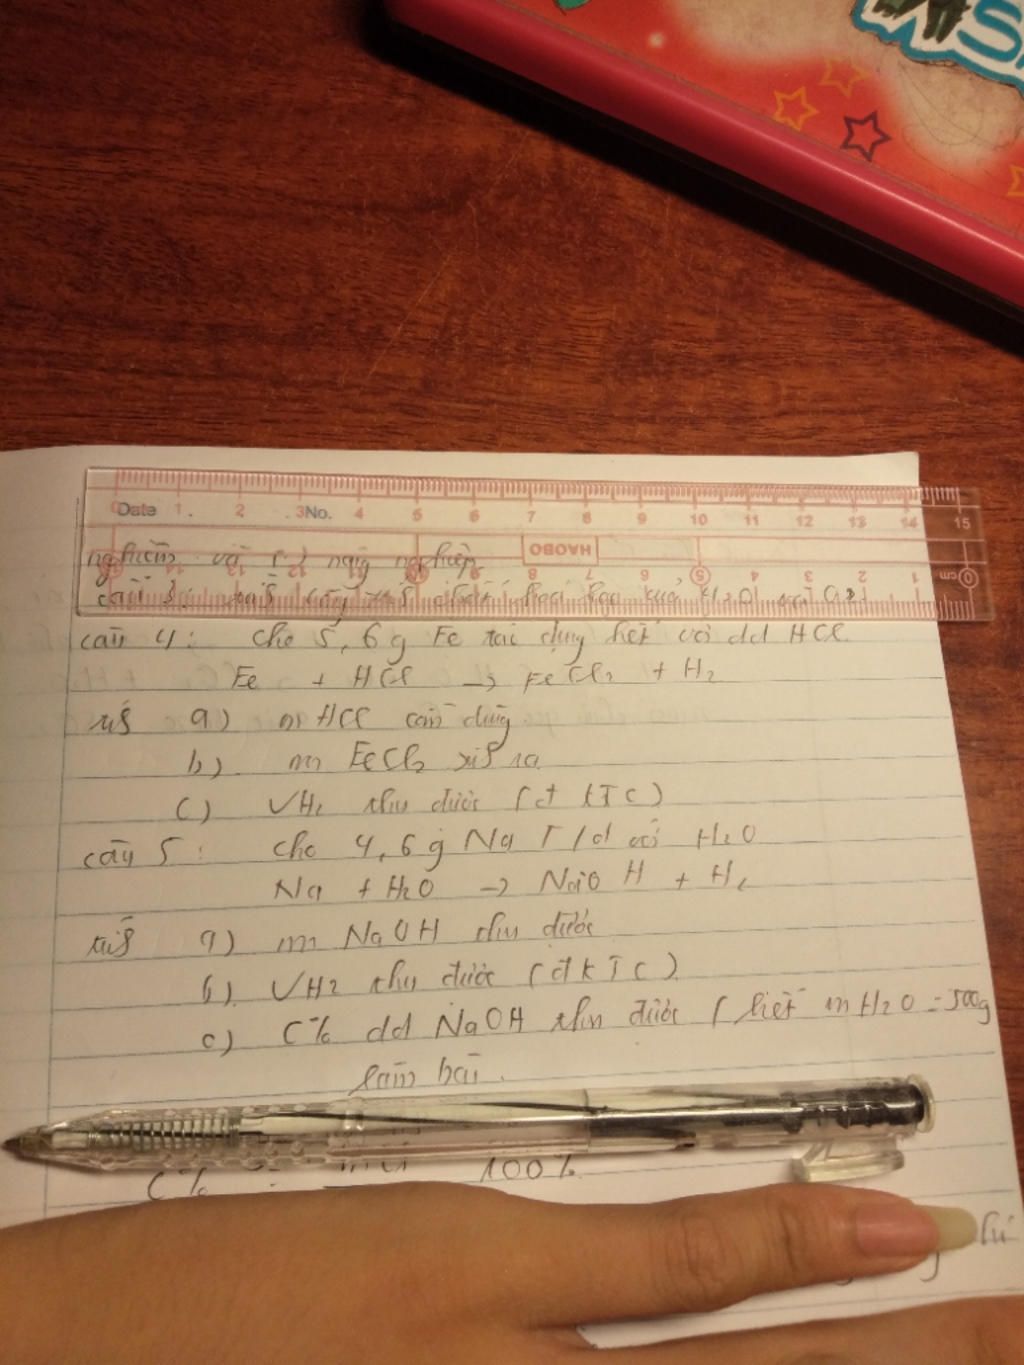 Date No.
HAOBO
nghiệm và ( ) ngiệp nghiệp
câu 3: tính chất hoá học của H2O và
câu 4: cho 5,6g Fe tác dụng hết với dd HCl
Fe + HCl -> FeCl2 + H2
tính a) m HCl cần dùng
b) m FeCl2 sinh ra
c) VH2 thu được (đktc)
câu 5: cho 4,6g Na T/d với H2O
Na + H2O -> NaOH + H2
tính a) m NaOH thu được
b) VH2 thu được (đktc)
c) C% dd NaOH thu được (biết mH2O = 500g
làm bài.
C% 100%